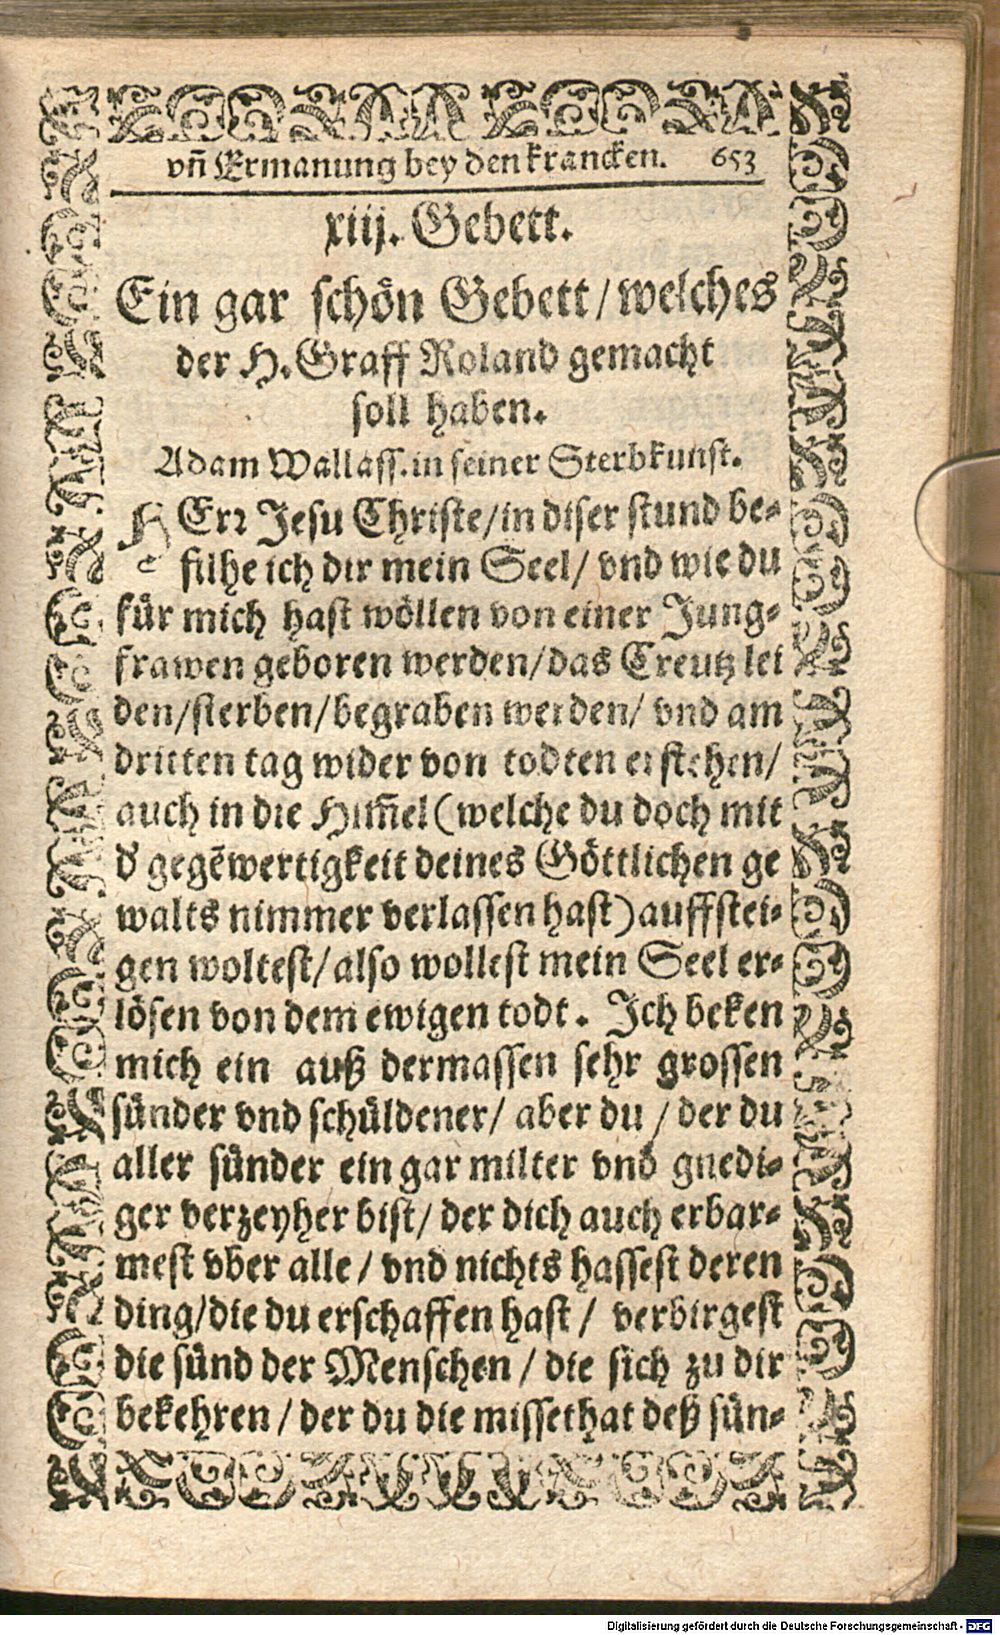 vñ Ermanung bey den krancken. 653
xiij. Gebett.
Ein gar schön Gebett / welches
der H. Graff Roland gemacht
soll haben.
Adam Wallass. in seiner Sterbkunst.
HErr Jesu Christe / in diser stund be-
filhe ich dir mein Seel / vnd wie du
für mich hast wöllen von einer Jung-
frawen geboren werden / das Creutz lei
den / sterben / begraben werden / vnd am
dritten tag wider von todten erstehen /
auch in die Him̃el (welche du doch mit
d' gegẽwertigkeit deines Göttlichen ge
walts nimmer verlassen hast) auffstei-
gen woltest / also wollest mein Seel er-
lösen von dem ewigen todt. Ich beken
mich ein auß dermassen sehr grossen
sünder vnd schüldener / aber du / der du
aller sünder ein gar milter vnd gnedi-
ger verzeyher bist / der dich auch erbar-
mest vber alle / vnd nichts hassest deren
ding / die du erschaffen hast / verbirgest
die sünd der Menschen / die sich zu dir
bekehren / der du die missethat deß sün-
Digitalisierung gefördert durch die Deutsche Forschungsgemeinschaft - DFG